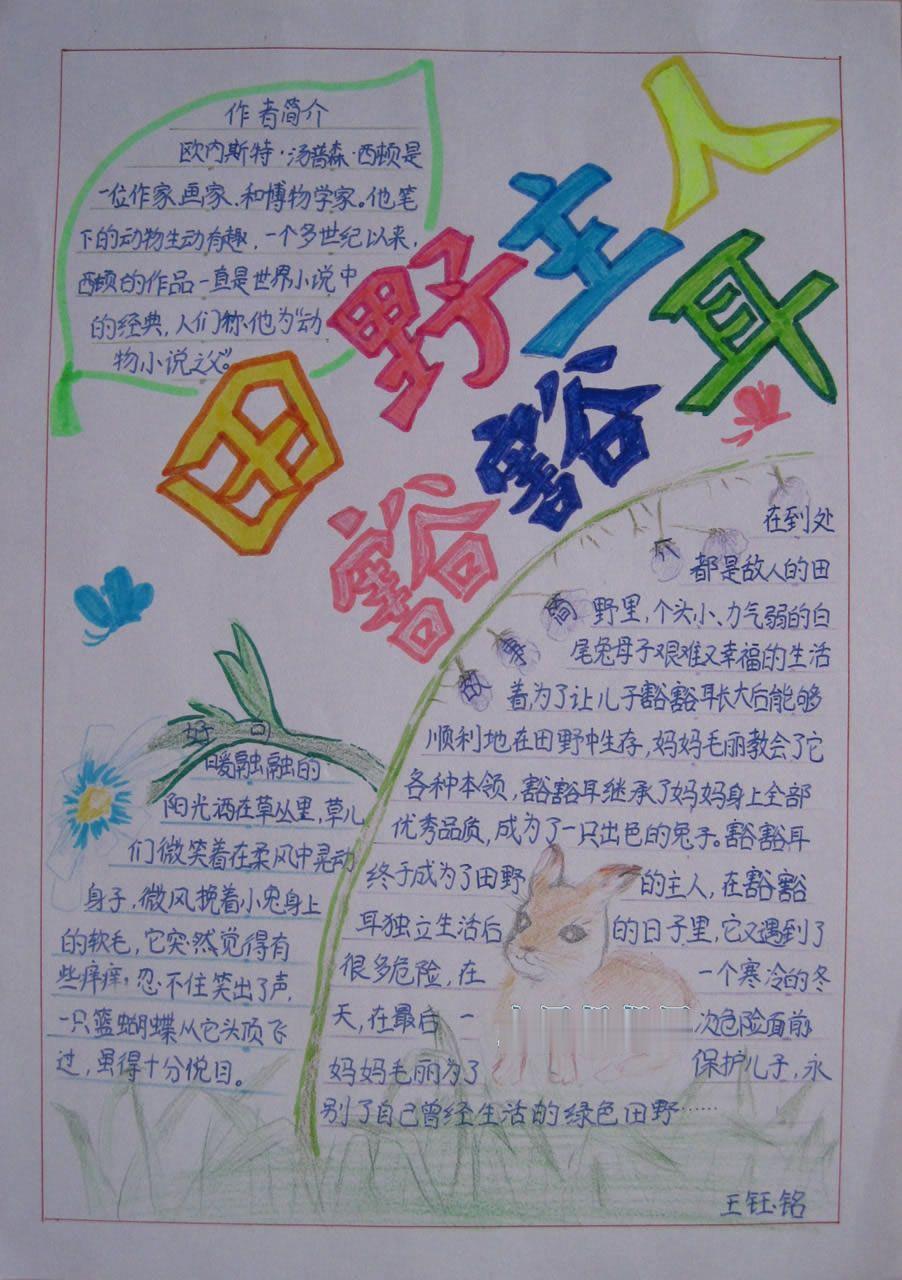 田野主人
豁豁耳
作者简介
欧内斯特·汤普森·西顿是
一位作家、画家、和博物学家。他笔
下的动物生动有趣，一个多世纪以来，
西顿的作品一直是世界小说中
的经典，人们称他为“动
物小说之父”。
故事简
在到处
都是敌人的田
野里，个头小、力气弱的白
尾兔母子艰难又幸福的生活
着，为了让儿子豁豁耳长大后能够
顺利地在田野中生存，妈妈毛丽教会了它
各种本领，豁豁耳继承了妈妈身上全部
优秀品质，成为了一只出色的兔子。豁豁耳
终于成为了田野的主人，在豁豁
耳独立生活后的日子里，它又遇到了
很多危险，在一个寒冷的冬
天，在最后一次危险面前，
妈妈毛丽为了保护儿子，永
别了自己曾经生活的绿色田野……
好句
暖融融的
阳光洒在草丛里，草儿
们微笑着在柔风中晃动
身子，微风挽着小兔身上
的软毛，它突然觉得有
些痒痒，忍不住笑出了声，
一只篮蝴蝶从它头顶飞
过，显得十分悦目。
王钰铭